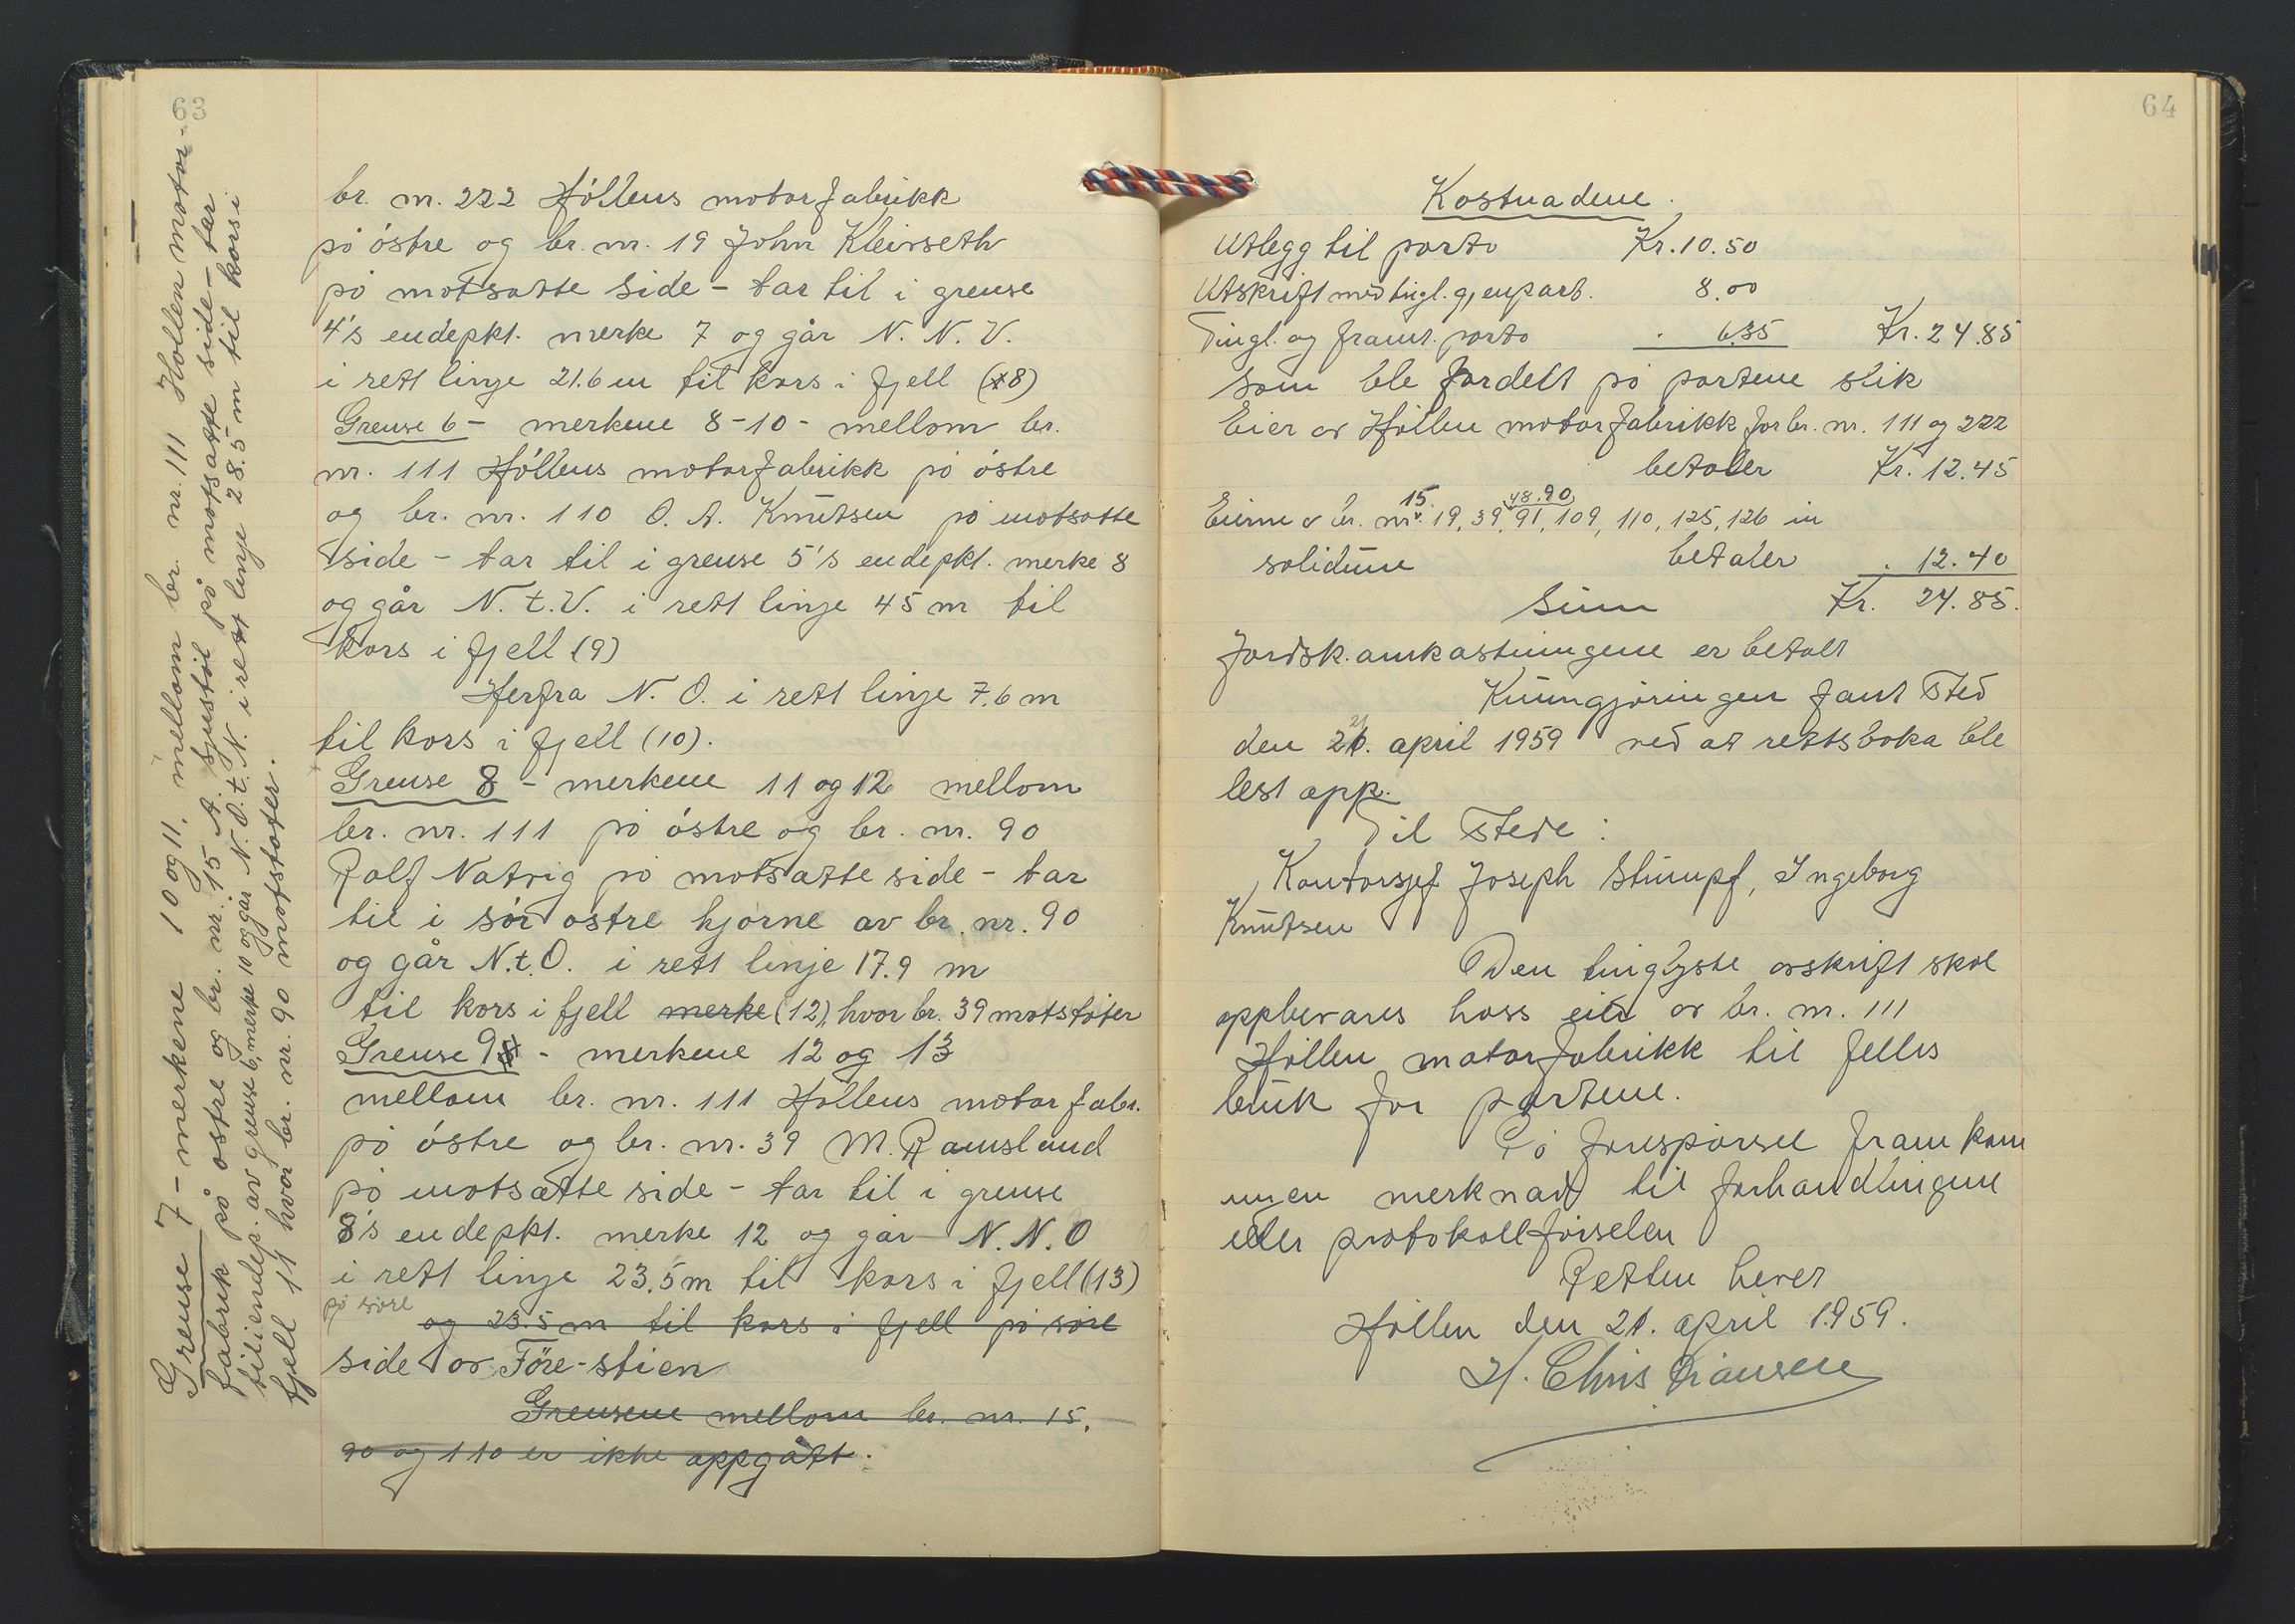 63
br. nr. 222 Höllens motorfabrikk
på östre og br. nr. 19 John Kleivseth
på motsatte side - tar til i grense
4's endepkt. merke 7 og går N. N. V.
i rett linje 21.6 m til kors i fjell (8)
Grense 6 - merkene 8-10 - mellom br.
nr. 111 Höllens motorfabrikk på östre
og br. nr. 110 O. A. Knutsen på motsatte
side - tar til i grense 5's endepkt. merke 8
og går N. t. V. i rett linje 45 m til
kors i fjell (9)
Herfra N. O. i rett linje 7.6 m
til kors i fjell (10).
Grense 8 - merkene 11 og 12 mellom
br. nr. 111 på östre og br. nr. 90
Ralf Natvig på motsatte side - tar
til i sör östre hjörne av br. nr. 90
og går N.t.O. i rett linje 17.9 m
til kors i fjell merke (12), hvor br. 39 motstöter
Grense 9 - merkene 12 og 13
mellom br. nr. 111 Höllens motorfabr.
på östre og br. nr. 39 M. Ramsland
på motsatte side - tar til i grense
8's endepkt. merke 12 og går N. N. O
i rett linje 23.5 m til kors i fjell (13)
på söre
og 23.5 m til kors i fjell på söre
side av Före-stien
Grensene mellom br. nr. 15,
90 og 110 er ikke oppgått.
Grense 7 - merkene 10 og 11, mellom br. nr. 111 Hollen motor-
fabrik på östre og br. nr. 15 A. på motsatte side - tar
til i endep. av grense 6, merke 10 og går N. O. t. N. i rett linje 28.5 m til kors i
fjell 11 hvor br. nr. 90 motstöter.
64
Kostnadene.
Utlegg til porto Kr. 10.50
Utskrift med tingl. gjenpart. 8.00
Tingl. og framt. porto . 6.35 Kr. 24.85
som ble fordelt på partene slik
Eier av Höllen motorfabrikk for br. nr. 111 og 222
betaler Kr. 12.45
15. 48.90
Eierne av br. nr. 19, 39, 91, 109, 110, 125, 126 in
solidum betaler . 12.40
Sum Kr. 24.85.
Jordsk.omkostningene er betalt
Kunngjöringen fant sted
den 21. april 1959 ved at rettsboka ble
lest opp.
Til stede:
Kontorsjef Joseph Stumpf, Ingeborg
Knutsen
Den tinglyste avskrift skal
oppbevares hoss eier av br. nr. 111
Höllen motorfabrikk til felles
bruk for partene.
På forespörsel framkom
ingen merknad til forhandlingene
eller protokollförselen
Retten hevet
Höllen den 21. april 1959.
H. Christiansen